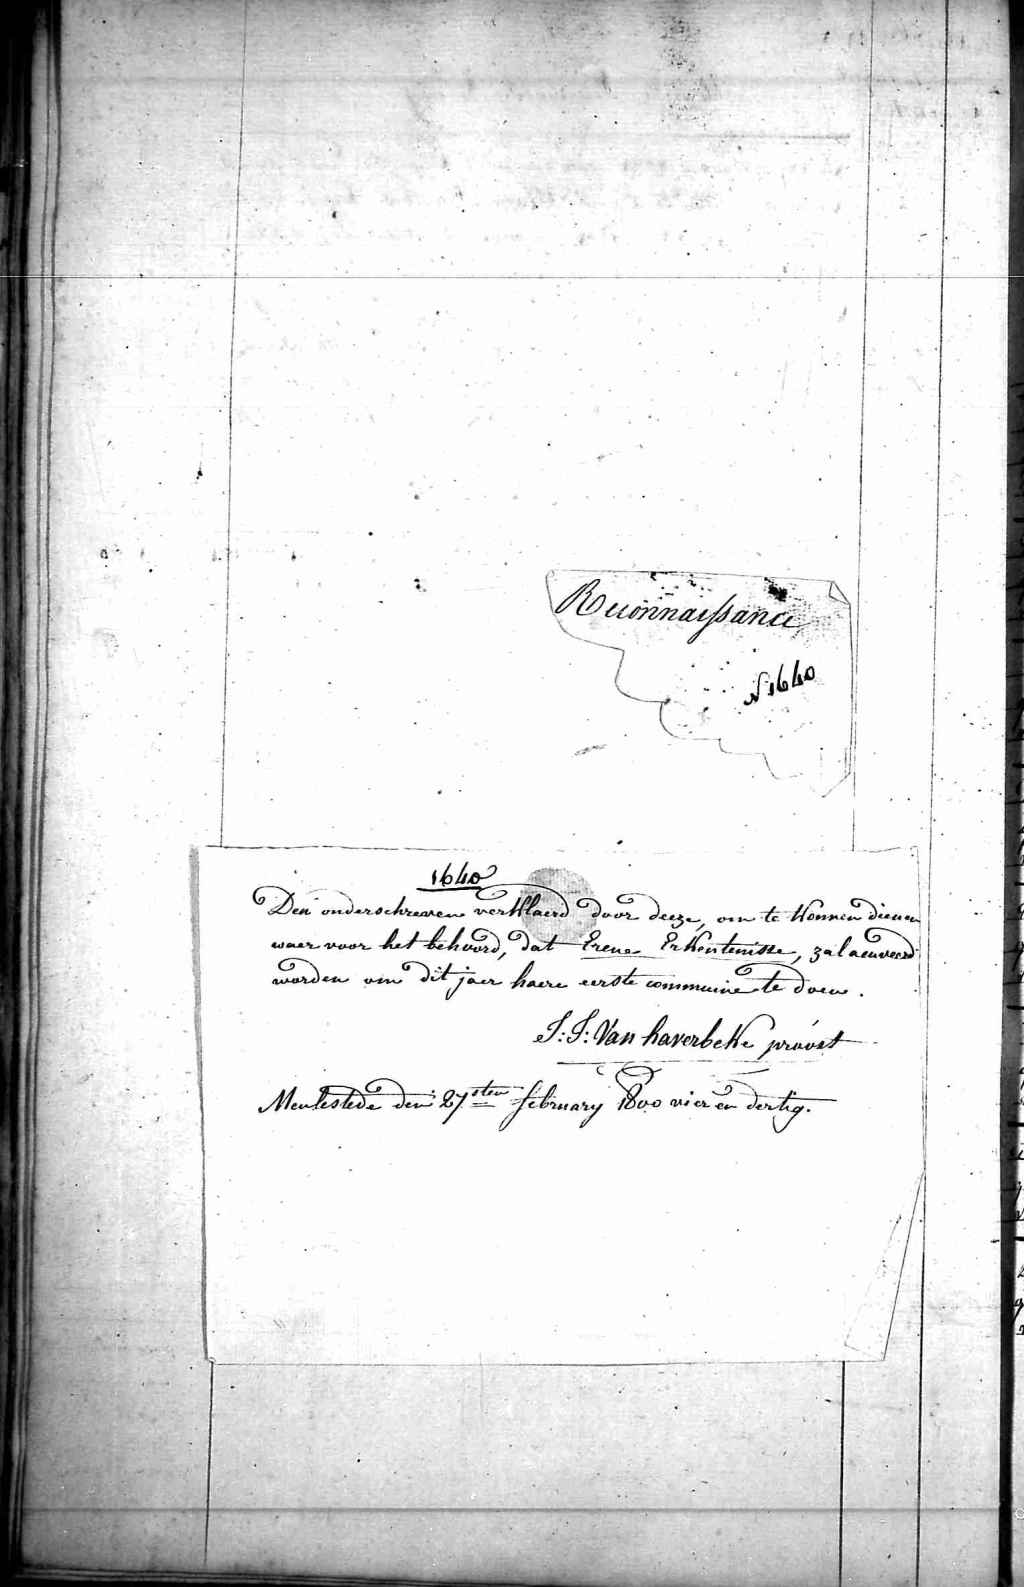 Reconnaissance
N 1640
1640
Den onderschreven verklaerd door deeze, om te konnen dienen
waer voor het behoord, dat Erene Erkentenisse, zal aenveerd
worden om dit jaer haere eerste communie te doen.
J: J: Van haverbeke provost
Meulestede den 27sten february 1800 vier en dertig.